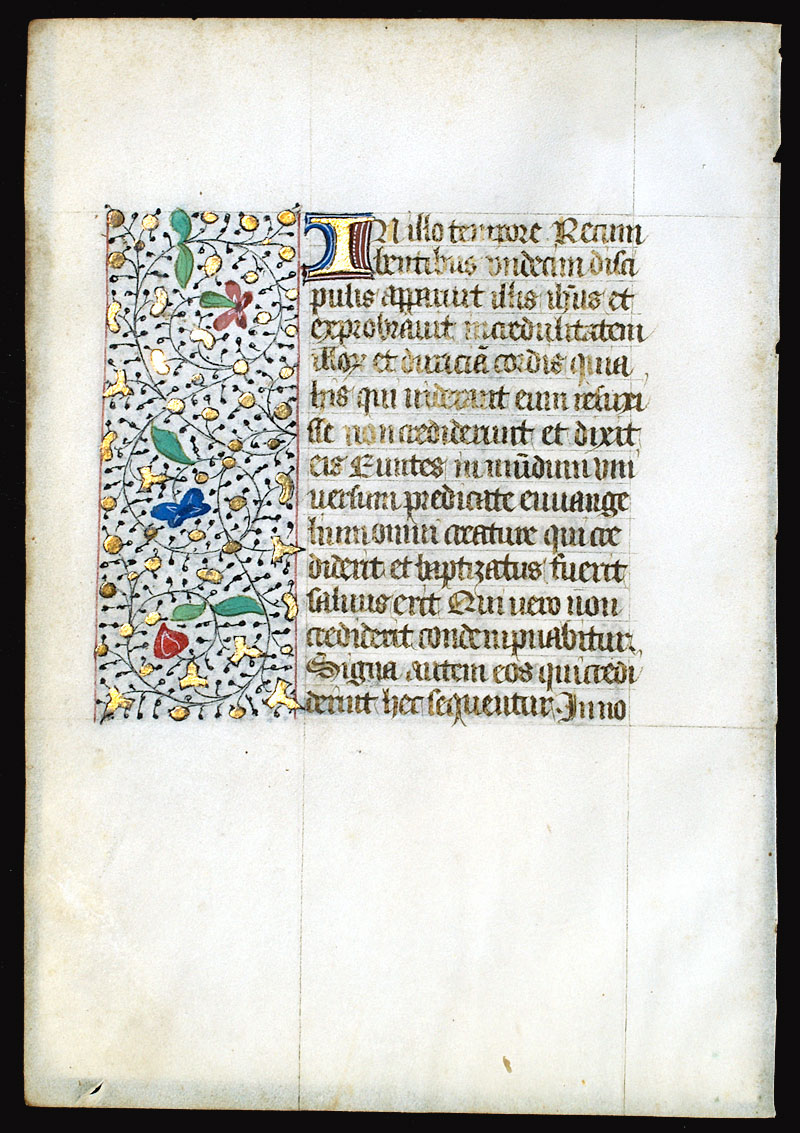 IN illo tempore Recum
bentibus vndecim disci
pulis apparuit illis ihus et
exprobrauit incredulitatem
illoꝝ et duriciā cordis quia
hiis qui viderant eum resurrexi
sse non crediderunt et dixit
eis Euntes in mūdum vni
uersum predicate euuange
lium omni creature qui cre
diderit et baptizatus fuerit
saluus erit Qui uero non
crediderit condempnabitur
Signa autem eos qui credi
derint hec sequentur In no